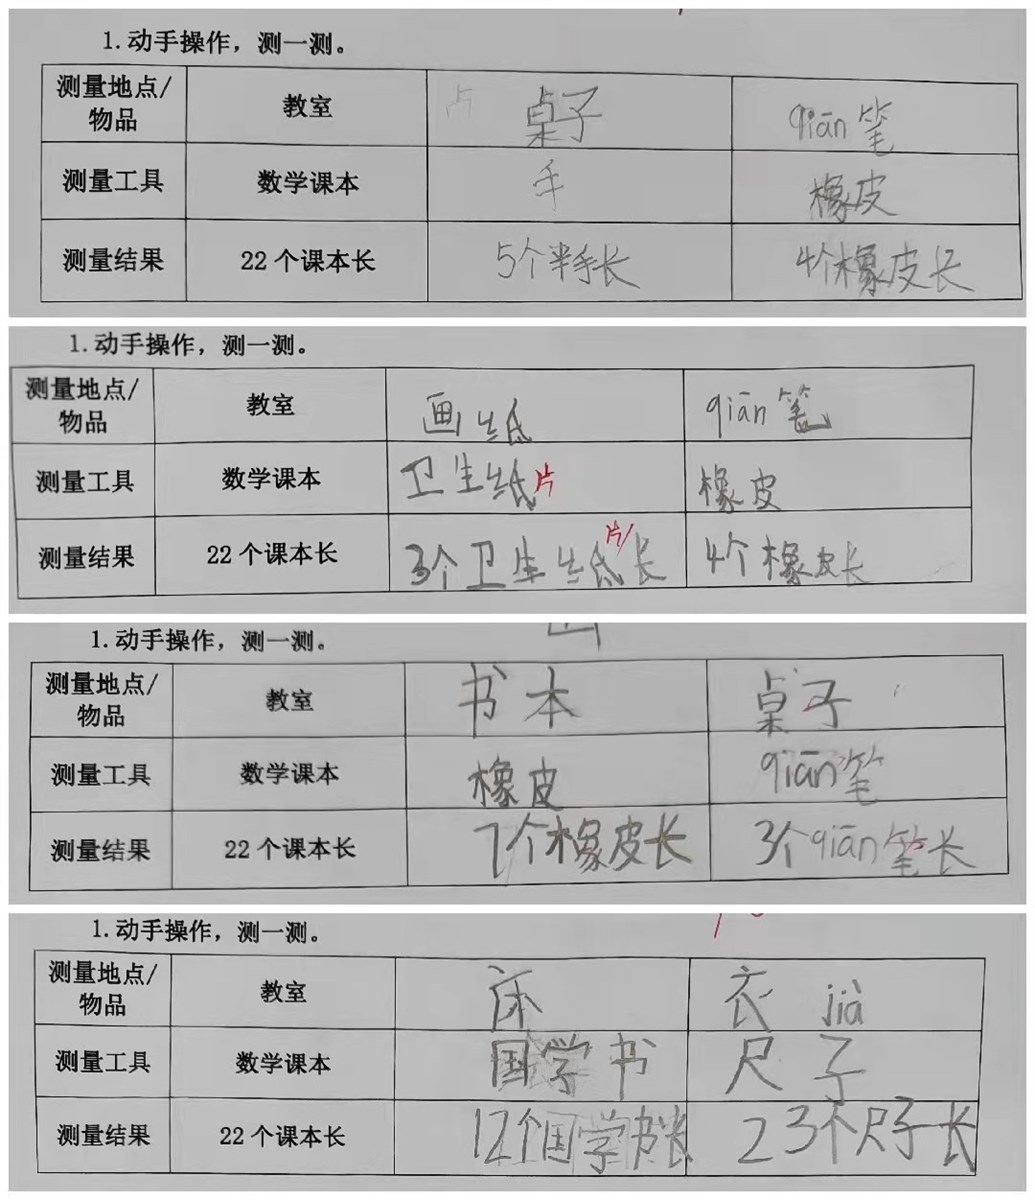 1. 动手操作，测一测。
测量地点/物品 教室 占 桌子 qiān笔
测量工具 数学课本 手 橡皮
测量结果 22 个课本长 5个半手长 4个橡皮长
1. 动手操作，测一测。
测量地点/物品 教室 画纸 qiān笔
测量工具 数学课本 卫生纸片 橡皮
测量结果 22 个课本长 3个卫生纸片长 4个橡皮长
1. 动手操作，测一测。
测量地点/物品 教室 书本 桌子
测量工具 数学课本 橡皮 qiān笔
测量结果 22 个课本长 7个橡皮长 3个qiān笔长
1. 动手操作，测一测。
测量地点/物品 教室 床 衣jià
测量工具 数学课本 国学书 尺子
测量结果 22 个课本长 12个国学书长 23个尺子长